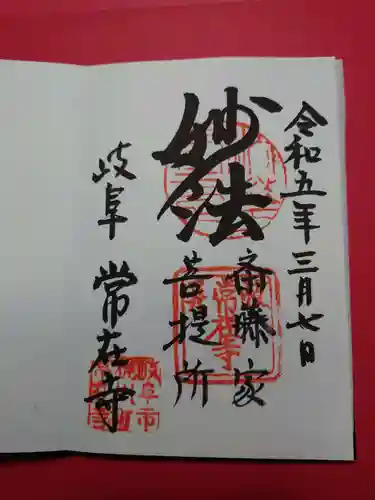 令和五年三月七日
妙法
斎藤家
菩提所
岐阜 常在寺
常在寺